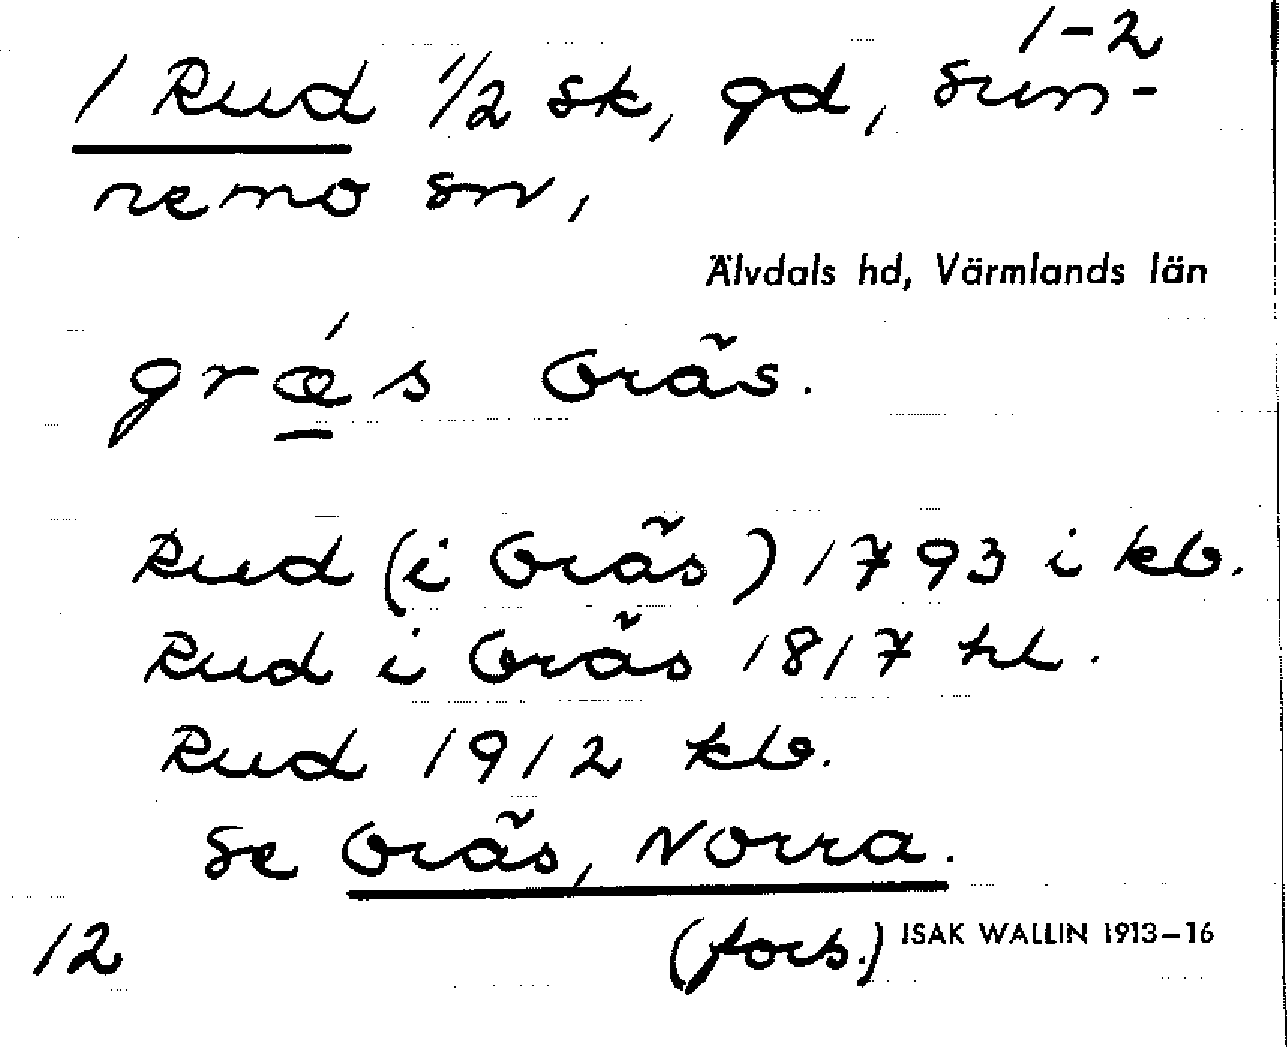 1-2
1 Rud 1/2 sk, gd, sun-
nemo sn,
Älvdals hd, Värmlands län
grǽ̲s Gräs.
Rud (i Gräs) 1793 i kb.
Rud i Gräs 1817 hl.
Rud 1912 kb.
se Gräs, Norra.
12 (forts.) ISAK WALLIN 1913-16